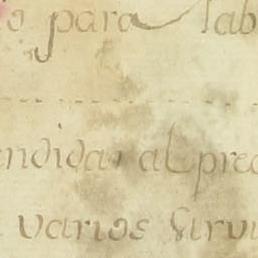 o para lab
endidas al prec
varios sirvi